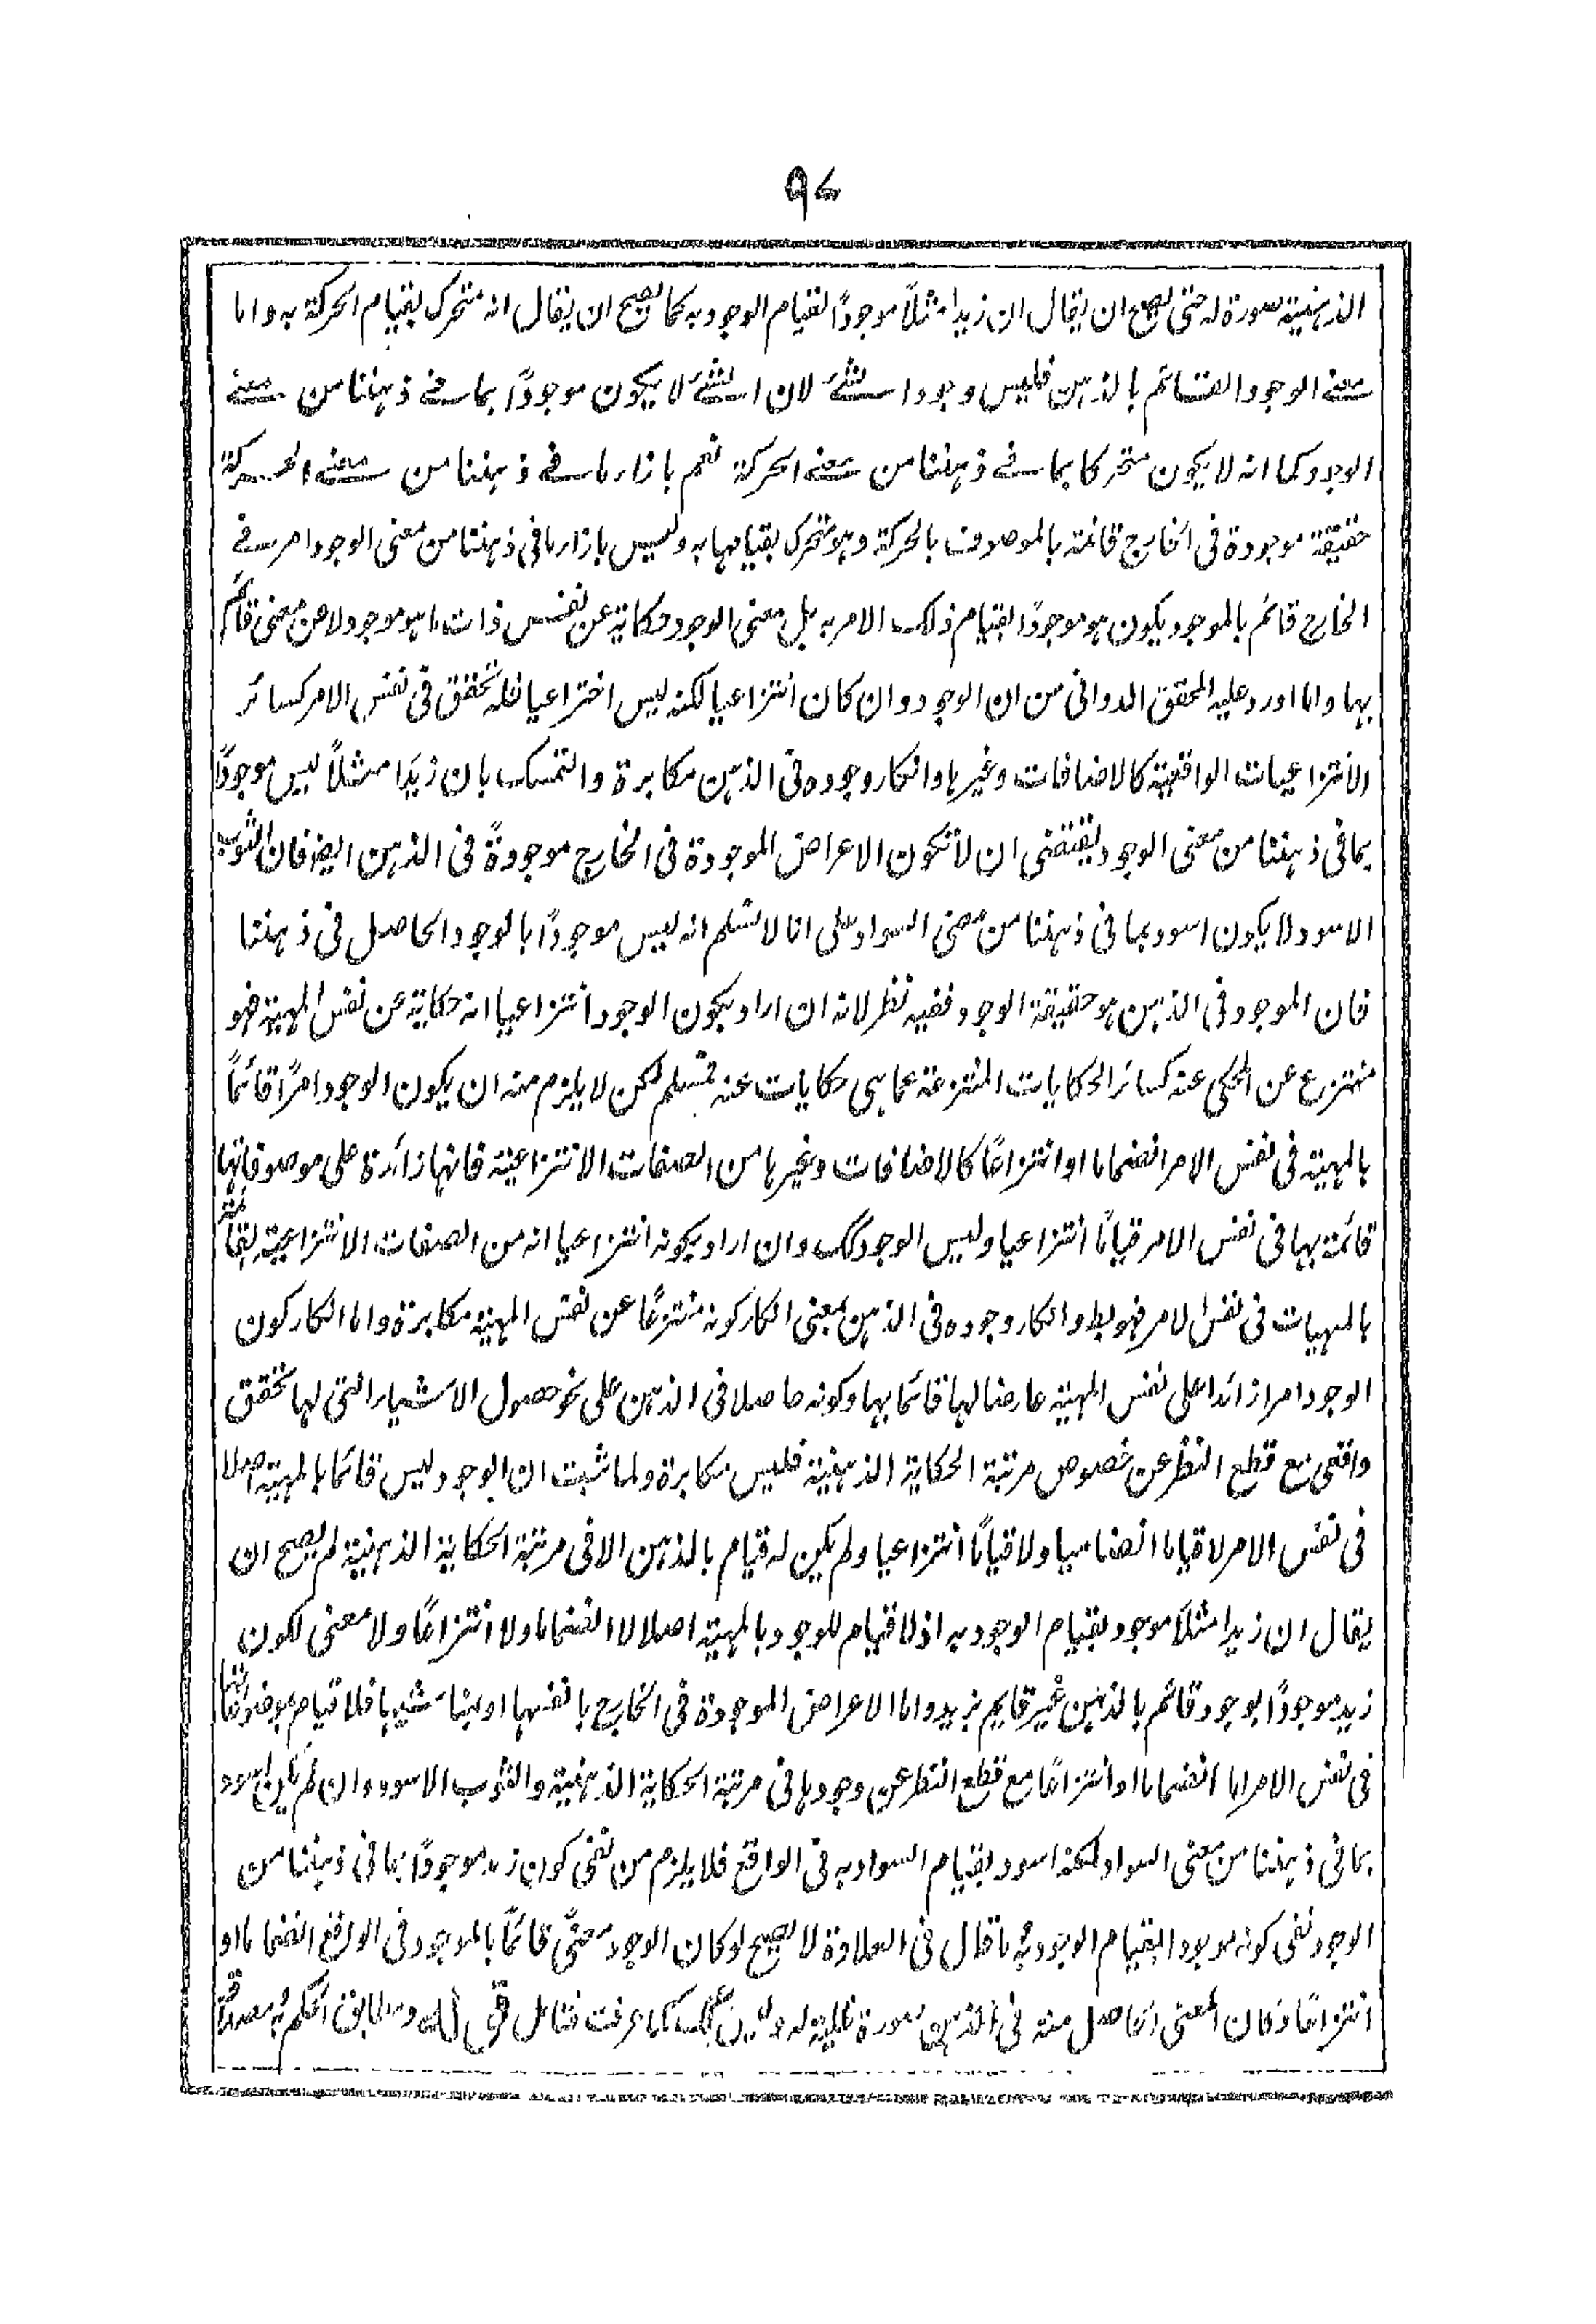 ٩٤
الذهنية صورة له حتى يصح ان يقال ان زيدا مثلاً موجودًا لقيام الوجود به كما يصح ان يقال انه متحرك بقيام الحركة به واما
معنے الوجود القائم بالذهن فليس وجودا لشئے لان الشئے لا يكون موجودًا بما فے ذهننا من معنے
الوجود كما انه لا يكون متحركا بما فے ذهننا من معنے الحركة نعم بازاء ما فے ذهننا من معنے الحركة
حقيقة موجودة فى الخارج قائمة بالموصوف بالحركة وهو متحرك بقيامها به وليس بازاء ما فى ذهننا من معنى الوجود امر فے
الخارج قائم بالموجود يكون هو موجودًا بقيام ذلك الامر به بل معنى الوجود حكاية عن نفس ذات ما هو موجود لا عن معنى قائم
بها واما اورد عليه المحقق الدوانى من ان الوجود وان كان انتزاعيا لكنه ليس اختراعيا فله تحقق فى نفس الامر كسائر
الانتزاعيات الواقعية كالاضافات وغيرها وانكار وجوده فى الذهن مكابرة والتمسك بان زيدًا مثلاً ليس موجودًا
بما فى ذهننا من معنى الوجود يقتضى ان لا تكون الاعراض الموجودة فى الخارج موجودةً فى الذهن ايضا فان الثوب
الاسود لا يكون اسود بما فى ذهننا من معنى السواد على انا لا نسلم انه ليس موجودًا بالوجود الحاصل فى ذهننا
فان الموجود فى الذهن هو حقيقة الوجود ففيه نظر لانه ان اراد بكون الوجود انتزاعيا انه حكاية عن نفس المهية فهو
منتزع عن المحكى عنه كسائر الحكايات المنتزعة عما هى حكايات عنه فمسلم لكن لا يلزم منه ان يكون الوجود امرًا قائمًا
بالمهية فى نفس الامر انضماما او انتزاعًا كالاضافات وغيرها من الصفات الانتزاعية فانها زائدة على موصوفاتها
قائمة بها فى نفس الامر قيامًا انتزاعيا وليس الوجود كك وان اراد بكونه انتزاعيا انه من الصفات الانتزاعية القائمة
بالمهيات فى نفس الامر فهو بط وانكار وجوده فى الذهن بمعنى انكار كونه منتزعًا عن نفس المهية مكابرة واما انكار كون
الوجود امرا زائدا على نفس المهية عارضا لها قائما بها وكونه حاصلا فى الذهن على نحو حصول الاشياء التى لها تحقق
واقعى مع قطع النظر عن خصوص مرتبة الحكاية الذهنية فليس مكابرة ولما ثبت ان الوجود ليس قائما بالمهية اصلا
فى نفس الامر لا قياما انضماميا ولا قيامًا انتزاعيا ولم يكن له قيام بالذهن الا فى مرتبة الحكاية الذهنية لم يصح ان
يقال ان زيدا مثلاً موجود بقيام الوجود به اذ لا قيام للوجود بالمهية اصلا لا انضماما ولا انتزاعًا ولا معنى لكون
زيد موجودًا بوجود قائم بالذهن غير قايم بزيد واما الاعراض الموجودة فى الخارج بانفسها او بمناشيها فلها قيام بموضوعاتها
فى نفس الامر اما انضماما او انتزاعًا مع قطع النظر عن وجودها فى مرتبة الحكاية الذهنية والثوب الاسود وان لم يكن اسود
بما فى ذهننا من معنى السواد لكنه اسود بقيام السواد به فى الواقع فلا يلزم من نفى كون زيد موجودًا بما فى ذهننا من
الوجود نفى كونه موجودا بقيام الوجود به وما قال فى العلاوة لا يصح لو كان الوجود معنًى قائمًا بالموجود فى الواقع انضماما او
انتزاعًا وكان المعنى الحاصل منه فى الذهن صورة ظلية له وليس كك كما عرفت فتامل قوله ومطابق الحكم به ومصداقه